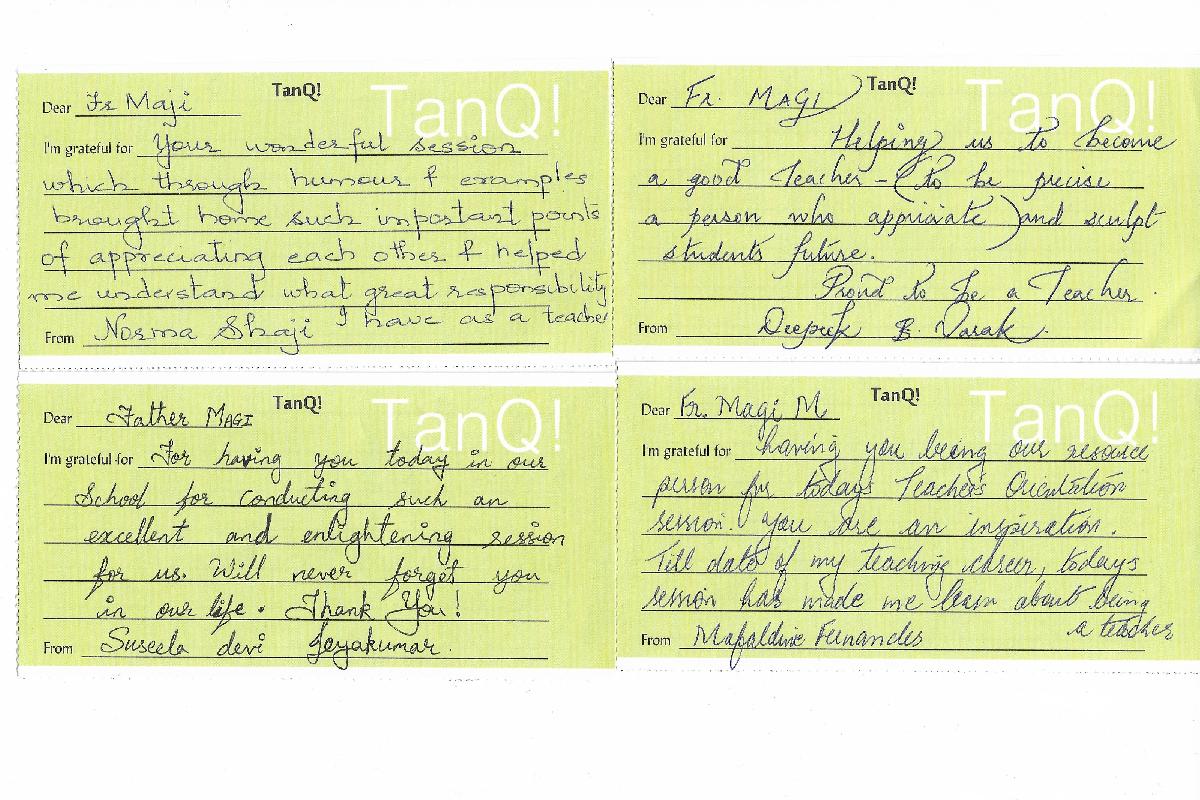 TanQ!
TanQ!
Dear Fr Maji
I'm grateful for Your wonderful session
which through humour & examples
brought home such important points
of appreciating each other & helped
me understand what great responsibility
I have as a teacher
From Norma Shaji
TanQ!
TanQ!
Dear Fr. MAGI
I'm grateful for Helping us to become
a good Teacher - (to be precise
a person who appriciate) and sculpt
students future.
Proud to be a Teacher.
From Deepak B. Varak.
TanQ!
TanQ!
Dear Father MAGI
I'm grateful for For having you today in our
School for conducting such an
excellent and enlightening session
for us. Will never forget you
in our life. Thank You!
From Suseela devi Jeyakumar.
TanQ!
TanQ!
Dear Fr. Magi M
I'm grateful for having you being our resource
person for todays Teacher's Orientation
session. You are an inspiration.
Till date of my teaching career, todays
session has made me learn about being
a teacher
From Mafaldine Fernandes